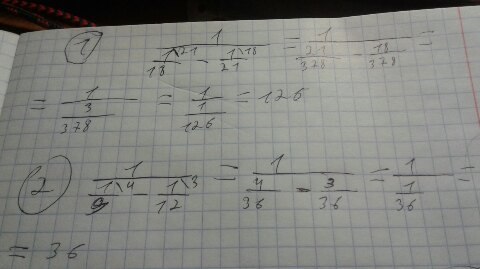 ① 1/(1\21/18 - 1\18/21) = 1/(21/378 - 18/378) =
= 1/(3/378) = 1/(1/126) = 126
② 1/(1\4/9 - 1\3/12) = 1/(4/36 - 3/36) = 1/(1/36) =
= 36